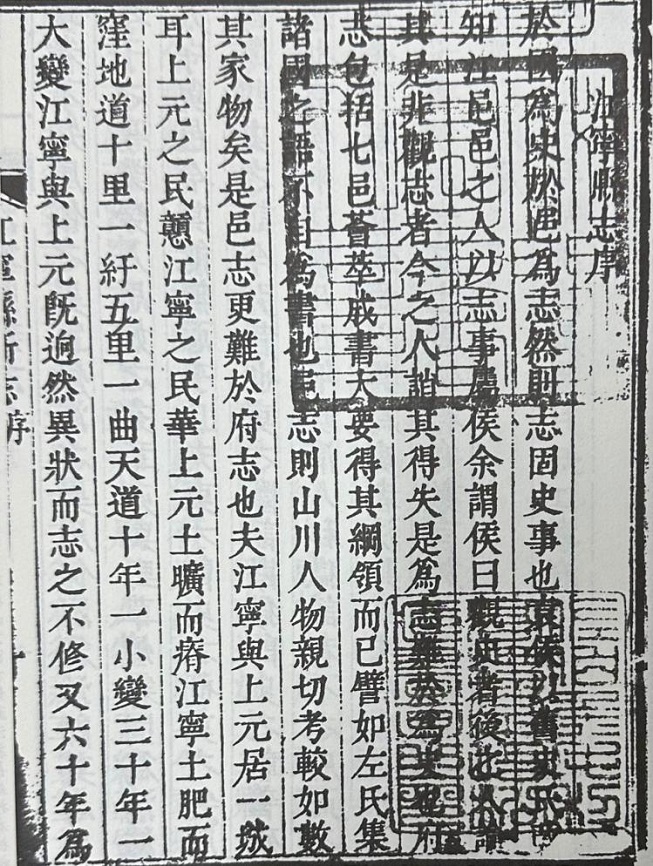 江寧縣志序
於國為史於邑為志然則志固史事也袁侯以舊史氏
知江邑邑之人以志事屬侯余謂侯曰觀史者後之人
其是非觀志者今之人 其得失是為志難於為史也府
志包括七邑薈萃成書大要得其綱領而已譬如左氏集
諸國之語不自為書也邑志則山川人物親切考較如數
其家物矣是邑志更難於府志也夫江寧與上元居一城
耳上元之民戇江寧之民華上元土曠而瘠江寧土肥而
窪地道十里一紆五里一曲天道十年一小變三十年一
大變江寧與上元旣逈然異狀而志之不修又六十年為
江寧縣新志序